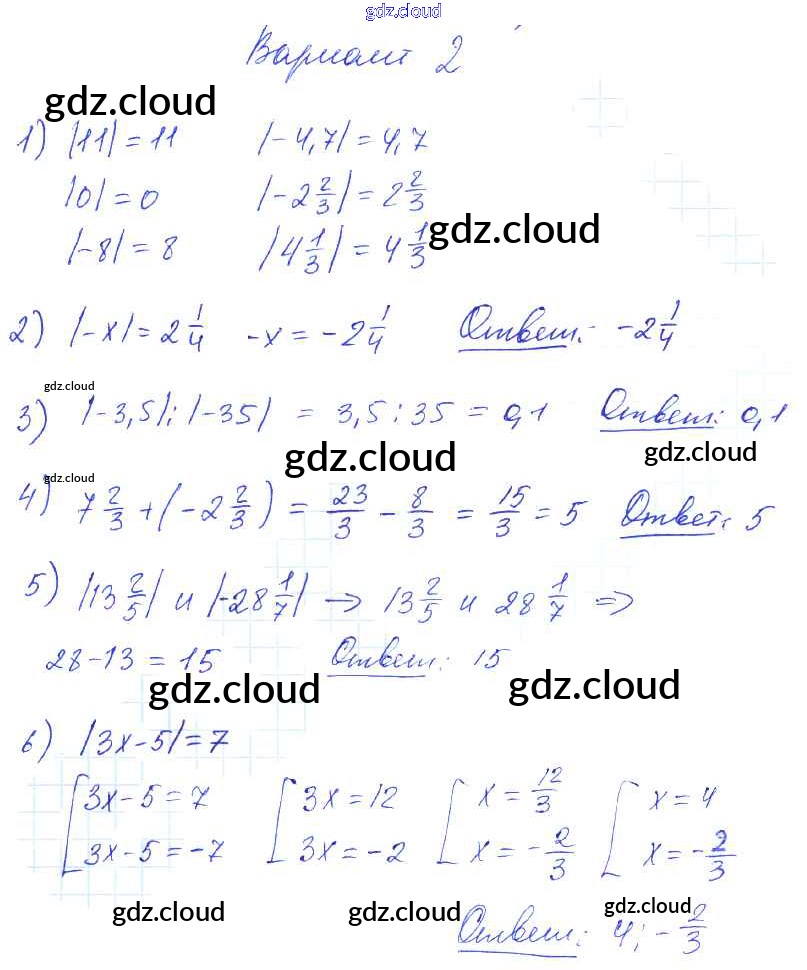 gdz.cloud
Вариант 2
gdz.cloud
1) |11| = 11 |-4,7| = 4,7
|0| = 0 |-2 2/3| = 2 2/3
gdz.cloud
|-8| = 8 |4 1/3| = 4 1/3
2) |-x| = 2 1/4 -x = -2 1/4 Ответ: -2 1/4
gdz.cloud
3) |-3,5| : |-35| = 3,5 : 35 = 0,1 Ответ: 0,1
gdz.cloud gdz.cloud
gdz.cloud
4) 7 2/3 + (-2 2/3) = 23/3 - 8/3 = 15/3 = 5 Ответ: 5
5) |13 2/5| и |-28 1/7| → 13 2/5 и 28 1/7 ⇒
28 - 13 = 15 Ответ: 15
gdz.cloud gdz.cloud
6) |3x - 5| = 7
[3x - 5 = 7 [3x = 12 [x = 12/3 [x = 4
[3x - 5 = -7 [3x = -2 [x = -2/3 [x = -2/3
gdz.cloud gdz.cloud gdz.cloud
Ответ: 4; -2/3